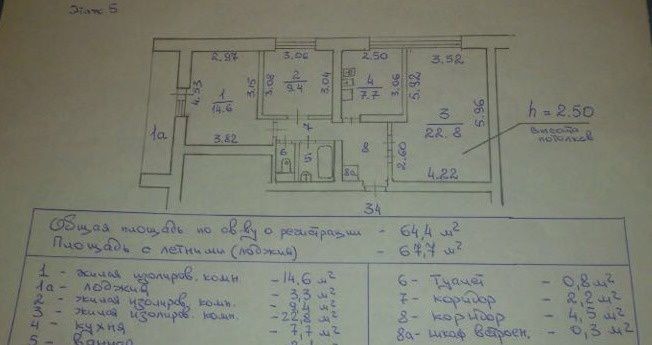 Этаж 5
2.97
3.06
2.50
3.52
4.53
3.15
3.08
2
9.4
3.04
4
7.7
3.06
5.92
1
14.6
3
22.8
5.96
h = 2.50
высота
потолков
1а
3.82
7
6
5
8
8а
2.60
4.22
34
Общая площадь по св-ву о регистрации - 64,4 м²
Площадь с летними (лоджия) - 67,7 м²
1 - жилая изолиров. комн. - 14,6 м²
1а - лоджия - 3,3 м²
2 - жилая изолиров. комн. - 9,4 м²
3 - жилая изолиров. комн. - 22,8 м²
4 - кухня - 7,7 м²
5 - ванная
6 - туалет - 0,8 м²
7 - коридор - 2,2 м²
8 - коридор - 4,5 м²
8а - шкаф встроен. - 0,3 м²